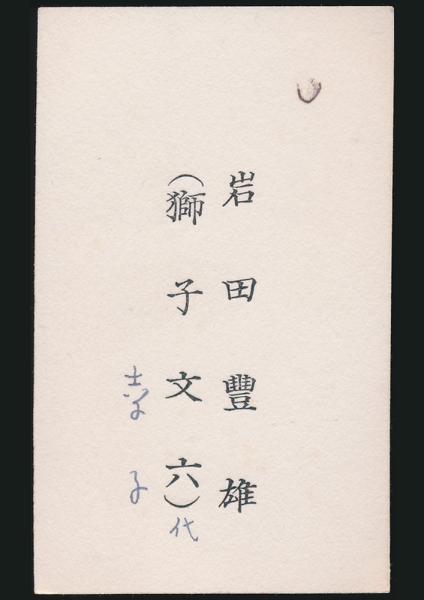 岩田豐雄
(獅子文六)代
幸子